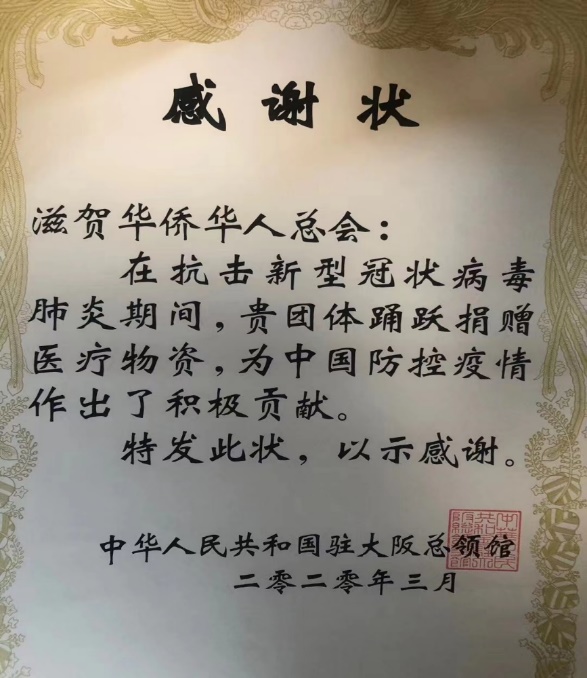 感谢状
滋贺华侨华人总会：
在抗击新型冠状病毒
肺炎期间，贵团体踊跃捐赠
医疗物资，为中国防控疫情
作出了积极贡献。
特发此状，以示感谢。
中华人民共和国驻大阪总领馆
二零二零年三月